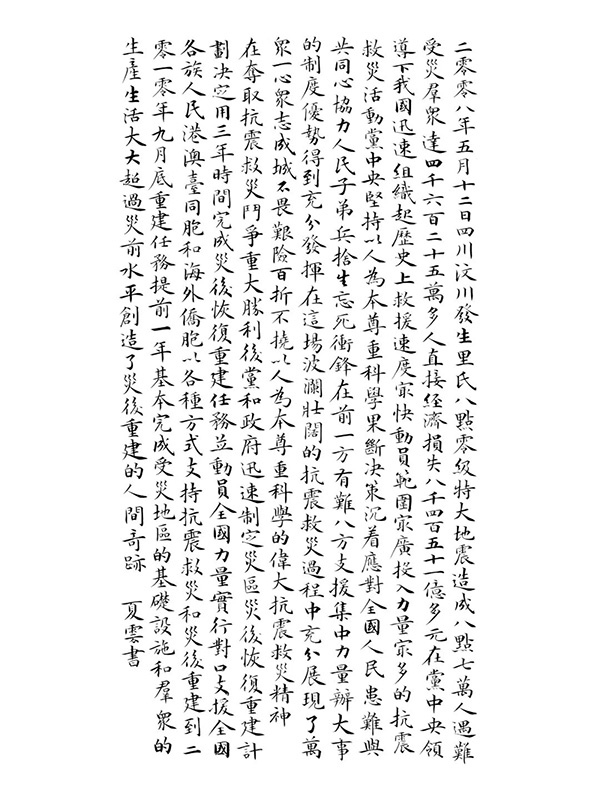 二零零八年五月十二日四川汶川發生里氏八點零級特大地震造成八點七萬人遇難
受災羣衆達四千六百二十五萬多人直接經濟損失八千四百五十一億多元在黨中央領
導下我國迅速組織起歷史上救援速度㝡快動員範圍㝡廣投入力量㝡多的抗震
救災活動黨中央堅持以人為本尊重科學果斷決策沉着應對全國人民患難與
共同心協力人民子弟兵捨生忘死衝鋒在前一方有難八方支援集中力量辦大事
的制度優勢得到充分發揮在這場波瀾壯闊的抗震救災過程中充分展現了萬
衆一心衆志成城不畏艱險百折不撓以人為本尊重科學的偉大抗震救災精神
在奪取抗震救災鬥爭重大勝利後黨和政府迅速制定災區災後恢復重建計
劃決定用三年時間完成災後恢復重建任務並動員全國力量實行對口支援全國
各族人民港澳臺同胞和海外僑胞以各種方式支持抗震救災和災後重建到二
零一零年九月底重建任務提前一年基本完成受災地區的基礎設施和羣衆的
生產生活大大超過災前水平創造了災後重建的人間奇跡 夏雲書